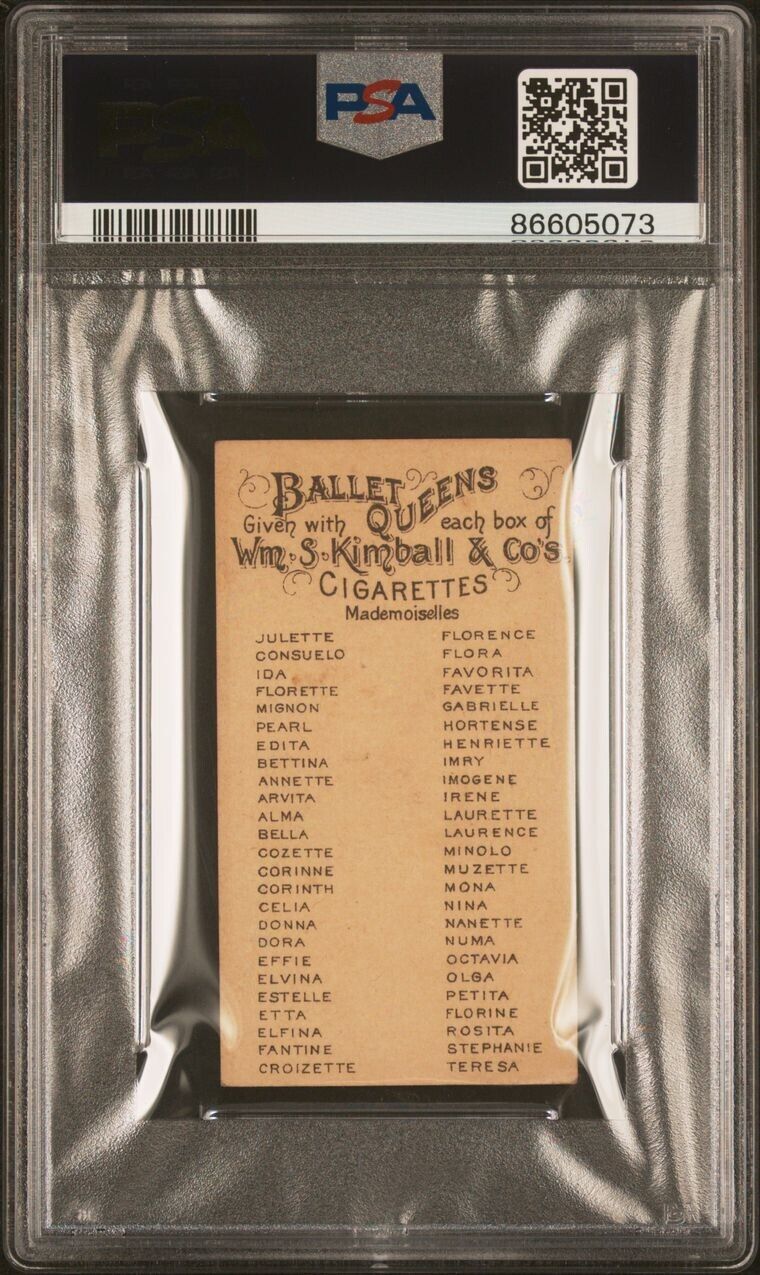 PSA
86605073
BALLET QUEENS
Given with each box of
Wm. S. Kimball & Co's.
CIGARETTES
Mademoiselles
JULETTE FLORENCE
CONSUELO FLORA
IDA FAVORITA
FLORETTE FAVETTE
MIGNON GABRIELLE
PEARL HORTENSE
EDITA HENRIETTE
BETTINA IMRY
ANNETTE IMOGENE
ARVITA IRENE
ALMA LAURETTE
BELLA LAURENCE
COZETTE MINOLO
CORINNE MUZETTE
CORINTH MONA
CELIA NINA
DONNA NANETTE
DORA NUMA
EFFIE OCTAVIA
ELVINA OLGA
ESTELLE PETITA
ETTA FLORINE
ELFINA ROSITA
FANTINE STEPHANIE
CROIZETTE TERESA